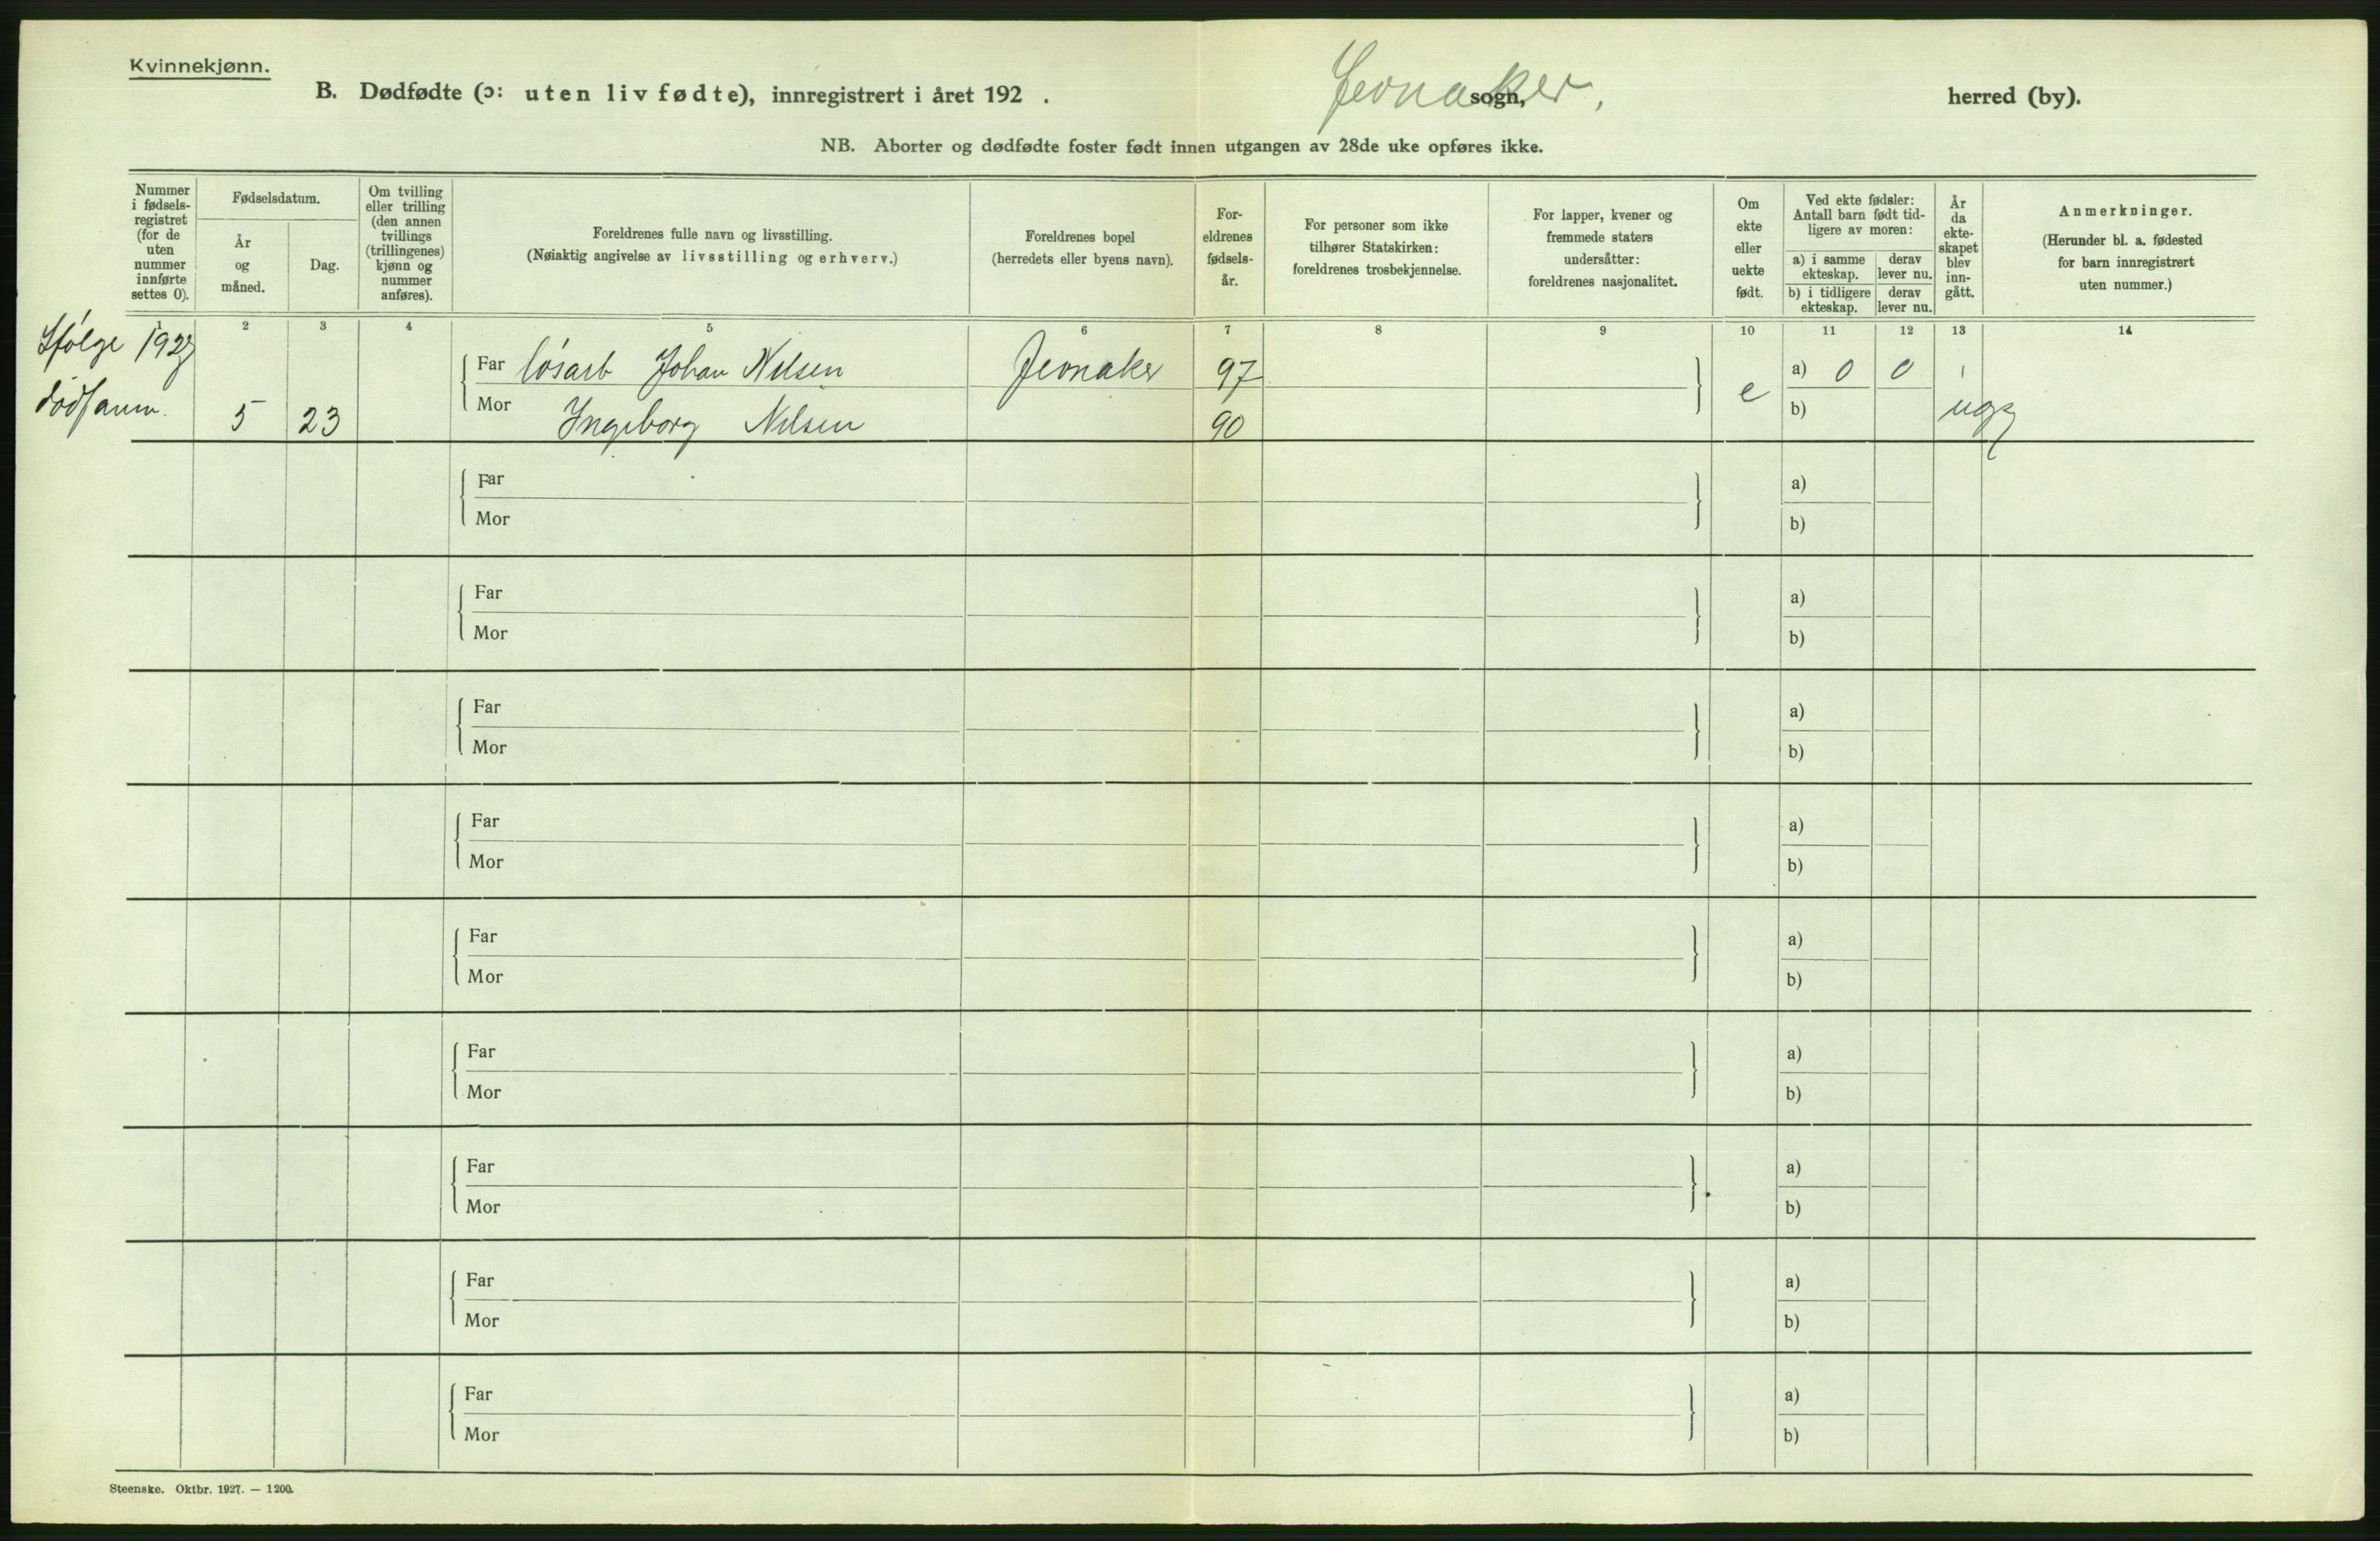 Kvinnekjønn.
B. Dødfødte (ɔ: uten liv fødte), innregistrert i året 192 . Jevnaker. sogn, herred (by).
NB. Aborter og dødfødte foster født innen utgangen av 28de uke opføres ikke.
Nummer i fødsels-registret (for de uten nummer innførte settes 0).
Fødselsdatum.
År og måned.
Dag.
Om tvilling eller trilling (den annen tvillings (trillingenes) kjønn og nummer anføres).
Foreldrenes fulle navn og livsstilling.
(Nøiaktig angivelse av livsstilling og erhverv.)
Foreldrenes bopel
(herredets eller byens navn).
For-eldrenes fødsels-år.
For personer som ikke tilhører Statskirken: foreldrenes trosbekjennelse.
For lapper, kvener og fremmede staters undersåtter: foreldrenes nasjonalitet.
Om ekte eller uekte født.
Ved ekte fødsler: Antall barn født tid-ligere av moren:
a) i samme ekteskap.
derav lever nu.
b) i tidligere ekteskap.
derav lever nu.
År da ekte-skapet blev inn-gått.
Anmerkninger.
(Herunder bl. a. fødested for barn innregistrert uten nummer.)
1 2 3 4 5 6 7 8 9 10 11 12 13 14
Ifølge 1927
Far løsarb Johan Nilsen Jevnaker 97 a) 0 0
dødsanm. 5 23 Mor Ingeborg Nilsen 90 e b) uopg
Far a)
Mor b)
Far a)
Mor b)
Far a)
Mor b)
Far a)
Mor b)
Far a)
Mor b)
Far a)
Mor b)
Far a)
Mor b)
Far a)
Mor b)
Far a)
Mor b)
Steenske. Oktbr. 1927. — 1200.